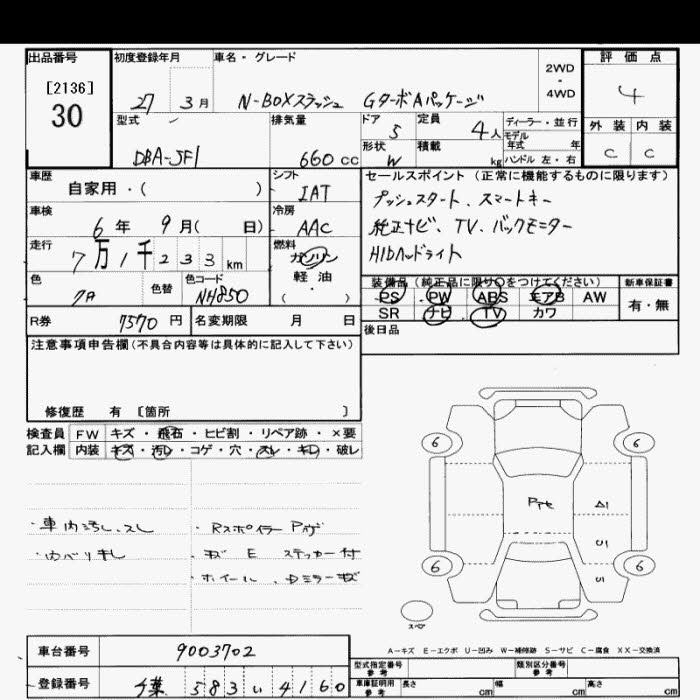 出品番号
[2136]
30
初度登録年月
27 3月
車名・グレード
N-BOXスラッシュ GターボAパッケージ
2WD
・
4WD
評価点
4
外装 内装
C C
型式
DBA-JF1
排気量
660 cc
ドア
5
定員
4人
形状
W
積載
kg
ディーラー・並行
モデル
年式 年
ハンドル 左・右
車歴
自家用・( )
シフト
IAT
車検
6年 9月( 日)
冷房
AAC
走行
7万1千233km
燃料
ガソリン
軽・油
( )
色
色替
色コード
NH850
セールスポイント (正常に機能するものに限ります)
プッシュスタート、スマートキー
純正ナビ、TV、バックモニター
HIDヘッドライト
装備品 (純正品に限り○をつけてください)
PS PW ABS エアB AW
SR ナビ TV カワ
新車保証書
有・無
R券 7570円
名変期限 月 日
後日品
注意事項申告欄(不具合内容等は具体的に記入して下さい)
修復歴 有 [箇所 ]
検査員 FW キズ・飛石・ヒビ割・リペア跡・×要
記入欄 内装 キズ・汚レ・コゲ・穴・スレ・キレ・破レ
・車内汚レ、スレ
・Rスポイラー
・キズ E ステッカー付
・ホイール、Dミラーキズ
6 6
6 6
A1
U1
スペア
A−キズ E−エクボ U−凹み W−補修跡 S−サビ C−腐食 XX−交換済
車台番号 9003702
登録番号 千葉 583 い 4160
型式指定番号
参考
類別区分番号
参考
車庫証明用
参考
長さ cm 幅 cm 高さ cm